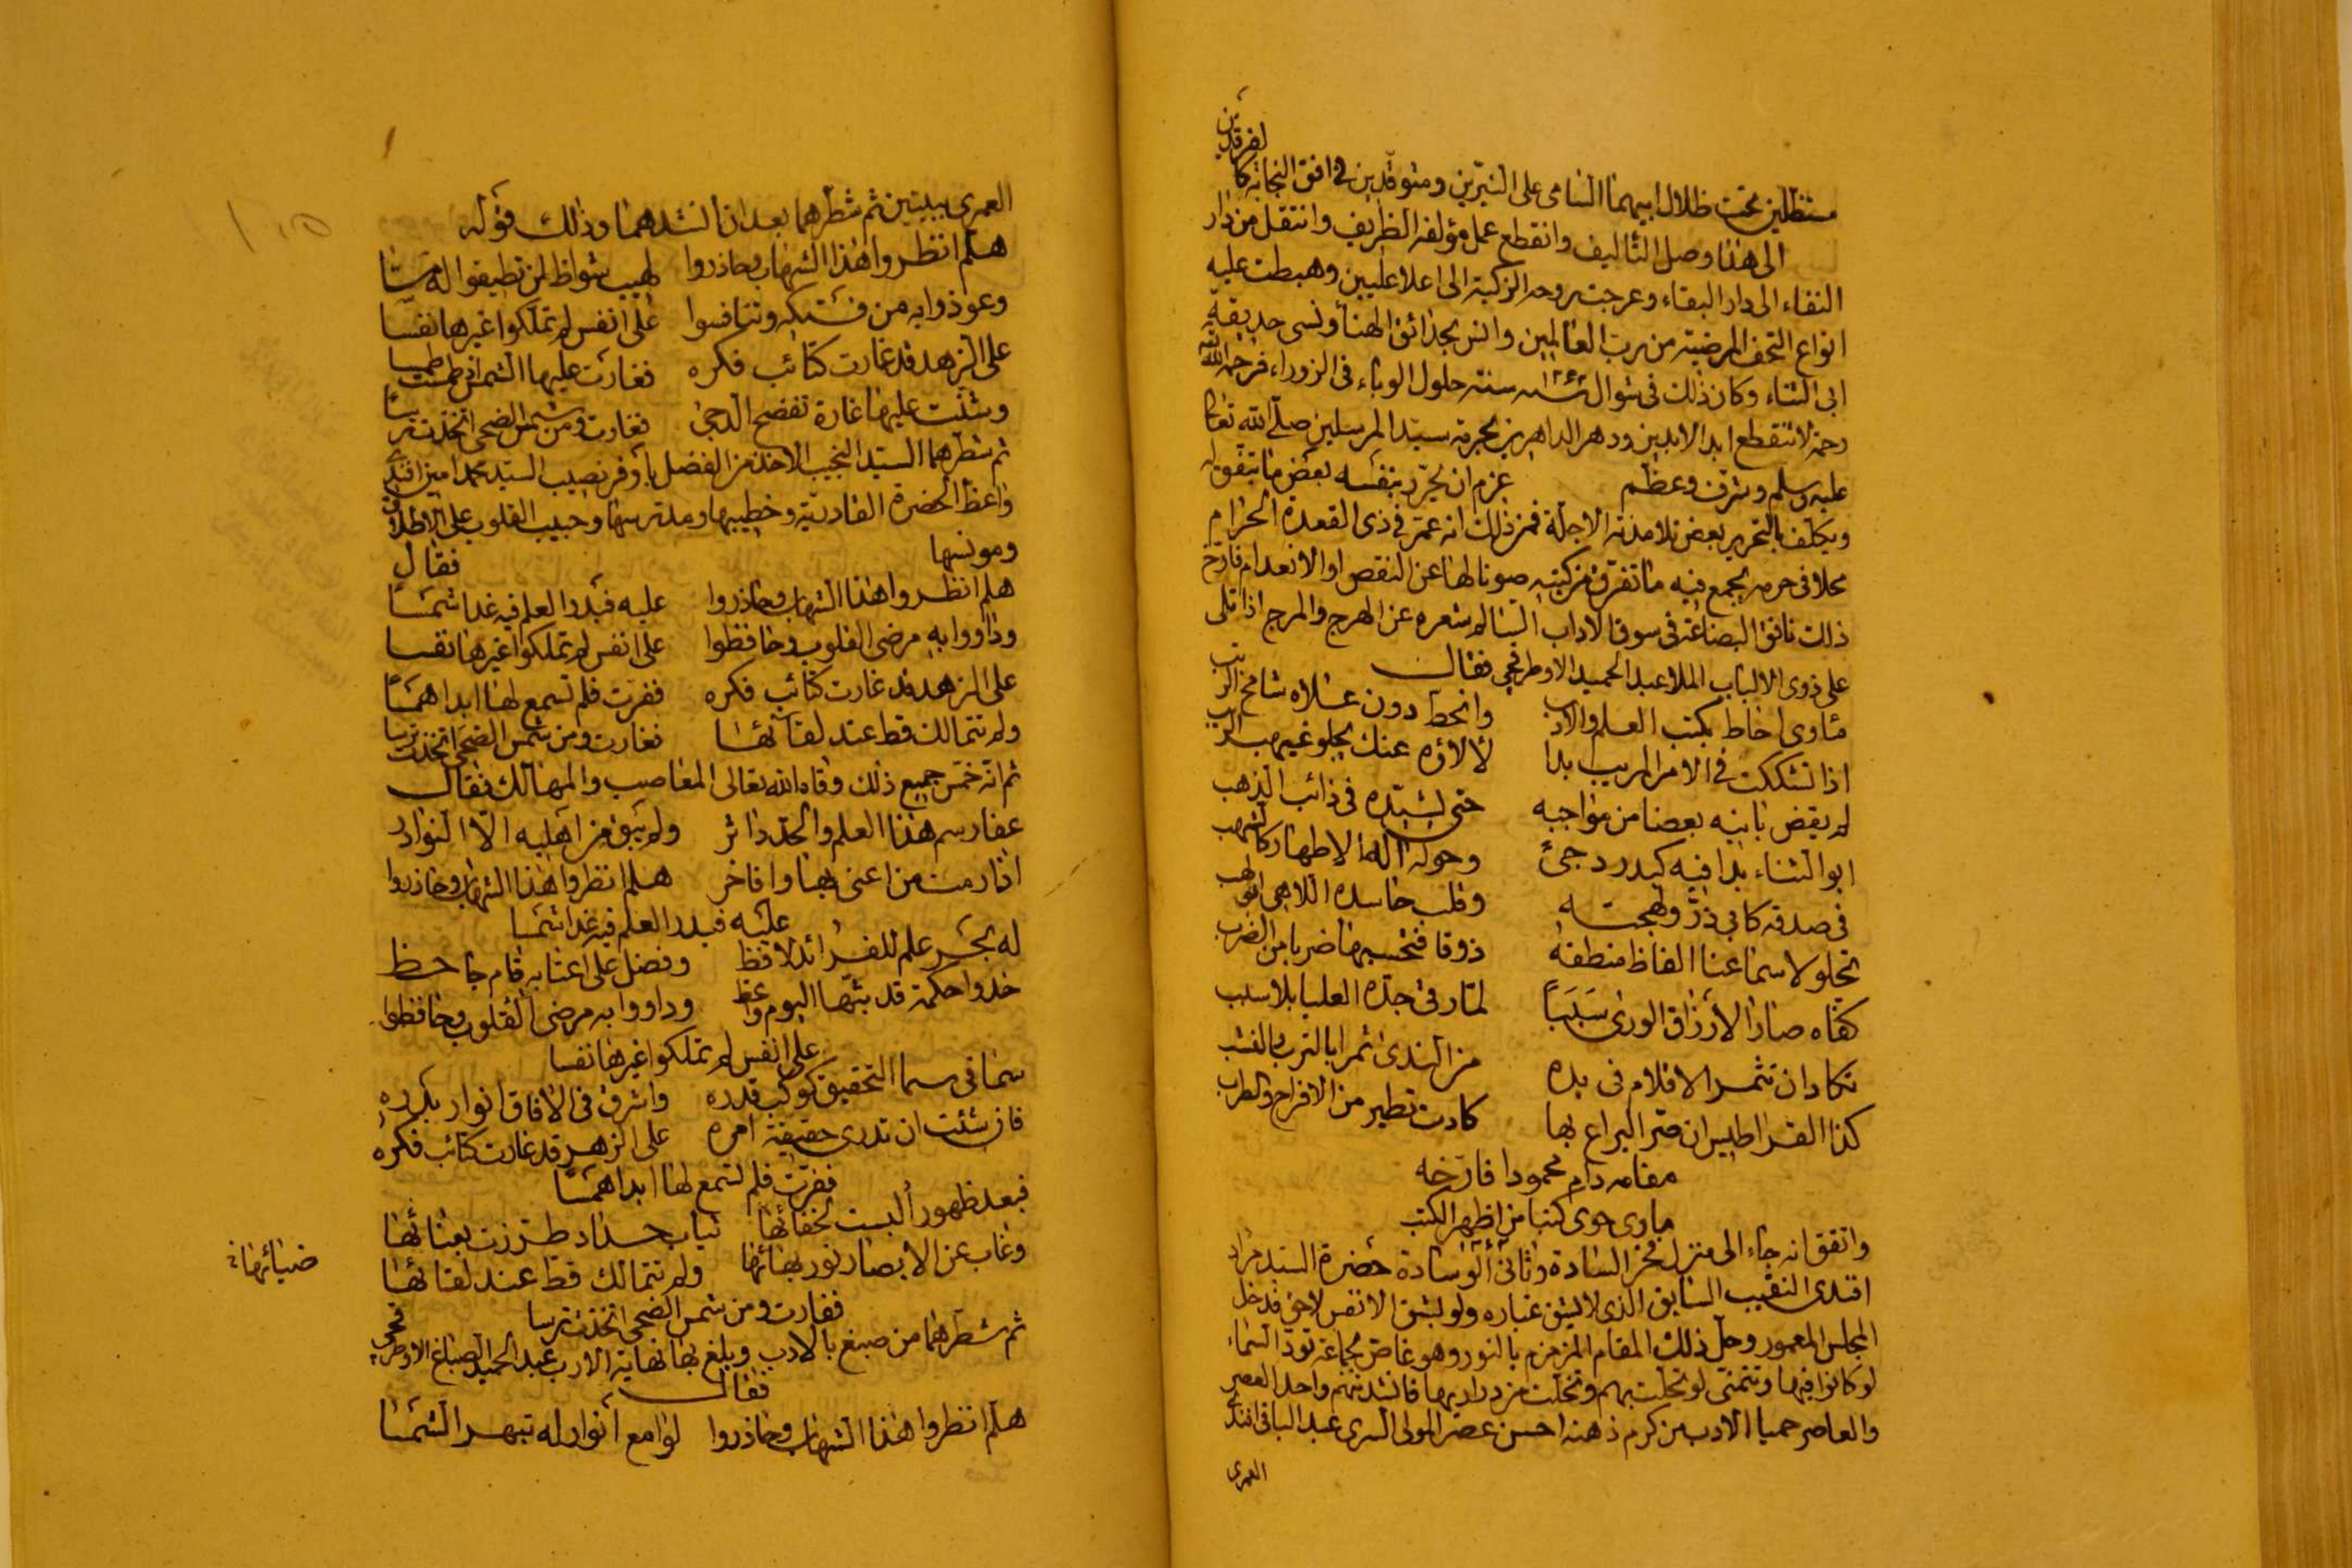 مستظلين تحت ظلال ابيهما السامى على النيرين ومتوقدين فى افق النجابة كالفرقدين
الى هنا وصل التأليف وانقطع عمل مؤلفه الظريف وانتقل من دار
الفناء الى دار البقاء وعرجت روحه الزكية الى اعلا عليين وهبطت عليه
انواع التحف المرضية من رب العالمين وانس بحدائق الهنا ونسى حديقة
ابى الثناء وكان ذلك فى شوال سنة حلول الوباء فى الزوراء فرحمه الله
رحمة لا تنقطع ابد الابدين ودهر الداهرين بحرمة سيد المرسلين صلى الله تعالى
عليه وسلم وشرف وعظم عزم ان يحرر بنفسه بعض ما يتفق له
ويكلف بالتحرير بعض تلامذته الاجلة فمن ذلك انه عمر فى ذى القعدة الحرام
محلا فى حرمه يجمع فيه ما تفرق من كتبه صونا لها عن النقص او الانعدام فارخ
ذلك نافق البضاعة فى سوق الاداب السالم شعره عن الهرج والمرج اذا تلى
على ذوى الالباب الملا عبد الحميد الاوطرقجى فقال
مأوى احاط بكتب العلم والادب وانحط دون علاه شامخ الرتب
اذا تشككت فى الامر المريب بدا لألاؤه عنك يجلو غيهب الريب
لم يقض بانيه بعضا من مواجبه حتى يشيده فى ذائب الذهب
ابو الثناء بدا فيه كبدر دجى وحوله آله الاطهار كالشهب
فى صدقه كابى ذر ولهجته وقلب حاسده اللاهى ابو لهب
تحلو لاسماعنا الفاظ منطقه ذوقا فتحسبها ضربا من الضرب
كفاه صار الارزاق الورى سببا لما رقى جده العليا بلا سبب
تكاد ان تثمر الاقلام فى يده من الندى ثمرا بالترب والقشب
كذا القراطيس ان مر اليراع بها كادت تطير من الافراح والطرب
مقامه دام محمودا فارخه
مأوى حوى كتبا من اظهر الكتب
واتفق انه جاء الى منزل فخر السادة وثانى الوسادة حضرة السيد مراد
افندى النقيب السابق الذى لا يشق غباره ولو بشق الانفس لاحق فدخل
المجلس المعمور وحل ذلك المقام المزمزم بالنور وهو غاص بجماعة تود السماء
لو كانوا فيها وتتمنى لو تحلت بهم وتخلت من دراريها فانشد منهم واحد العصر
والعاصر حميا الادب من كرم ذهنه احسن عصر المولى السرى عبد الباقى افندى
العمرى
العمرى ببيتين ثم شطرهما بعد ان انشدهما وذلك قوله
هلم انظروا هذا الشهاب وحاذروا لهيب شواظ لن تطيقوا له مسا
وعوذوا به من فتكه وتنافسوا على انفس لم تملكوا غيرها نفسا
على الزهد قد غارت كتائب فكره فغارت عليها الشمس اذ طمست طمسا
وشنت عليها غارة تفضح الدجى فغارت ومن شمس الضحى اتخذت ترسا
ثم شطرهما السيد النجيب الاخذ من الفضل بأوفر نصيب السيد محمد امين افندى
واعظ الحضرة القادرية وخطيبها ومدرسها وحبيب القلوب على الاطلاق
ومونسها فقال
هلم انظروا هذا الشهاب وحاذروا عليه فبدر العلم فيه غدا شمسا
وداووا به مرضى القلوب وحافظوا على انفس لم تملكوا غيرها نفسا
على الزهد قد غارت كتائب فكره ففرت فلم تسمع لها ابدا همسا
ولم تتمالك قط عند لقائها فغارت ومن شمس الضحى اتخذت ترسا
ثم انه خمس جميع ذلك وقاه الله تعالى المغاصب والمهالك فقال
عفا رسم هذا العلم والحد داثر ولم يبق من اهليه الا النوادر
اذا رمت من اعنى بها وافاخر هلم انظروا هذا الشهاب وحاذروا
عليه فبدر العلم فيه غدا شمسا
له بحر علم للفرائد لافظ وفضل على اعتابه قام جاحظ
خذوا حكمة قد بثها اليوم واعظ وداووا به مرضى القلوب وحافظوا
على انفس لم تملكوا غيرها نفسا
سما فى سما التحقيق كوكب قدره واشرق فى الافاق انوار بدره
فان شئت ان تدرى حقيقة امره على الزهر قد غارت كتائب فكره
ففرت فلم تسمع لها ابدا همسا
فبعد ظهور ألبست لخفائها ثياب حداد طرزت بعنائها
وغاب عن الابصار نور بهائها ولم تتمالك قط عند لقائها
ضيائها
فغارت ومن شمس الضحى اتخذت ترسا
ثم شطرهما من صبغ بالادب وبلغ بها نهاية الارب عبد الحميد الصباغ الاوطرقجى
فقال
هلم انظروا هذا الشهاب وحاذروا لوامع أنوار له تبهر الشمسا